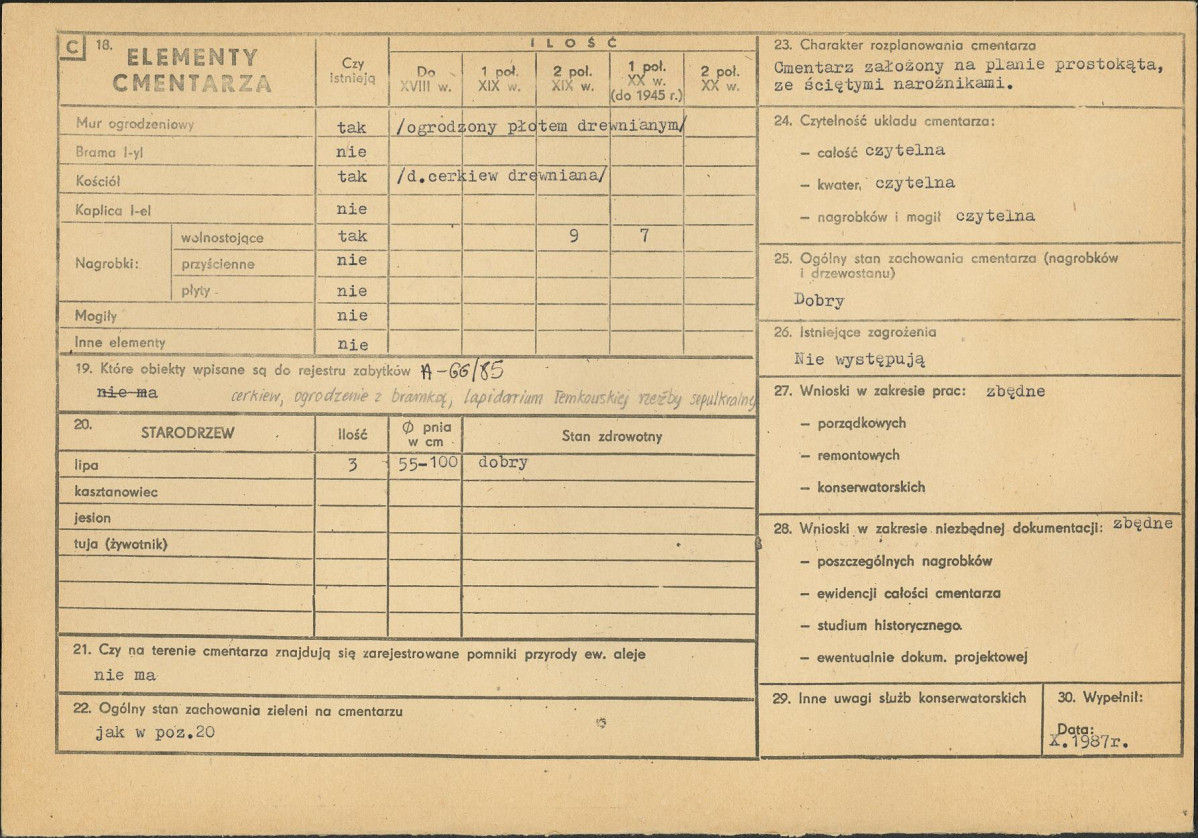 C 18. ELEMENTY CMENTARZA
Czy istnieją
ILOŚĆ
Do XVIII w.
1 poł. XIX w.
2 poł. XIX w.
1 poł. XX w. (do 1945 r.)
2 poł. XX w.
Mur ogrodzeniowy tak /ogrodzony płotem drewnianym/
Brama I-yl nie
Kościół tak /d.cerkiew drewniana/
Kaplica I-el nie
Nagrobki: wolnostojące tak 9 7
przyścienne nie
płyty nie
Mogiły nie
Inne elementy nie
19. Które obiekty wpisane są do rejestru zabytków A-66/85
nie ma cerkiew, ogrodzenie z bramką, lapidarium łemkowskiej rzeźby sepulkralnej
20. STARODRZEW Ilość Ø pnia w cm Stan zdrowotny
lipa 3 55-100 dobry
kasztanowiec
jesion
tuja (żywotnik)
21. Czy na terenie cmentarza znajdują się zarejestrowane pomniki przyrody ew. aleje
nie ma
22. Ogólny stan zachowania zieleni na cmentarzu
jak w poz.20
23. Charakter rozplanowania cmentarza
Cmentarz założony na planie prostokąta,
ze ściętymi narożnikami.
24. Czytelność układu cmentarza:
– całość czytelna
– kwater, czytelna
– nagrobków i mogił czytelna
25. Ogólny stan zachowania cmentarza (nagrobków
i drzewostanu)
Dobry
26. Istniejące zagrożenia
Nie występują
27. Wnioski w zakresie prac: zbędne
– porządkowych
– remontowych
– konserwatorskich
28. Wnioski w zakresie niezbędnej dokumentacji: zbędne
– poszczególnych nagrobków
– ewidencji całości cmentarza
– studium historycznego.
– ewentualnie dokum. projektowej
29. Inne uwagi służb konserwatorskich
30. Wypełnił:
Data:
X.1987r.